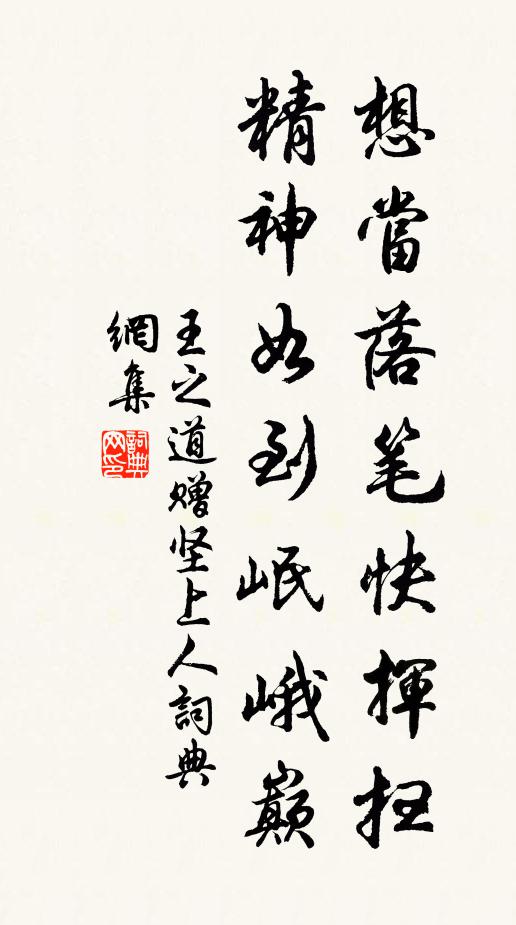 想當落笔快揮扫
精神如到岷峨巔
王之道赠坚上人詞典
網集
詞典网印